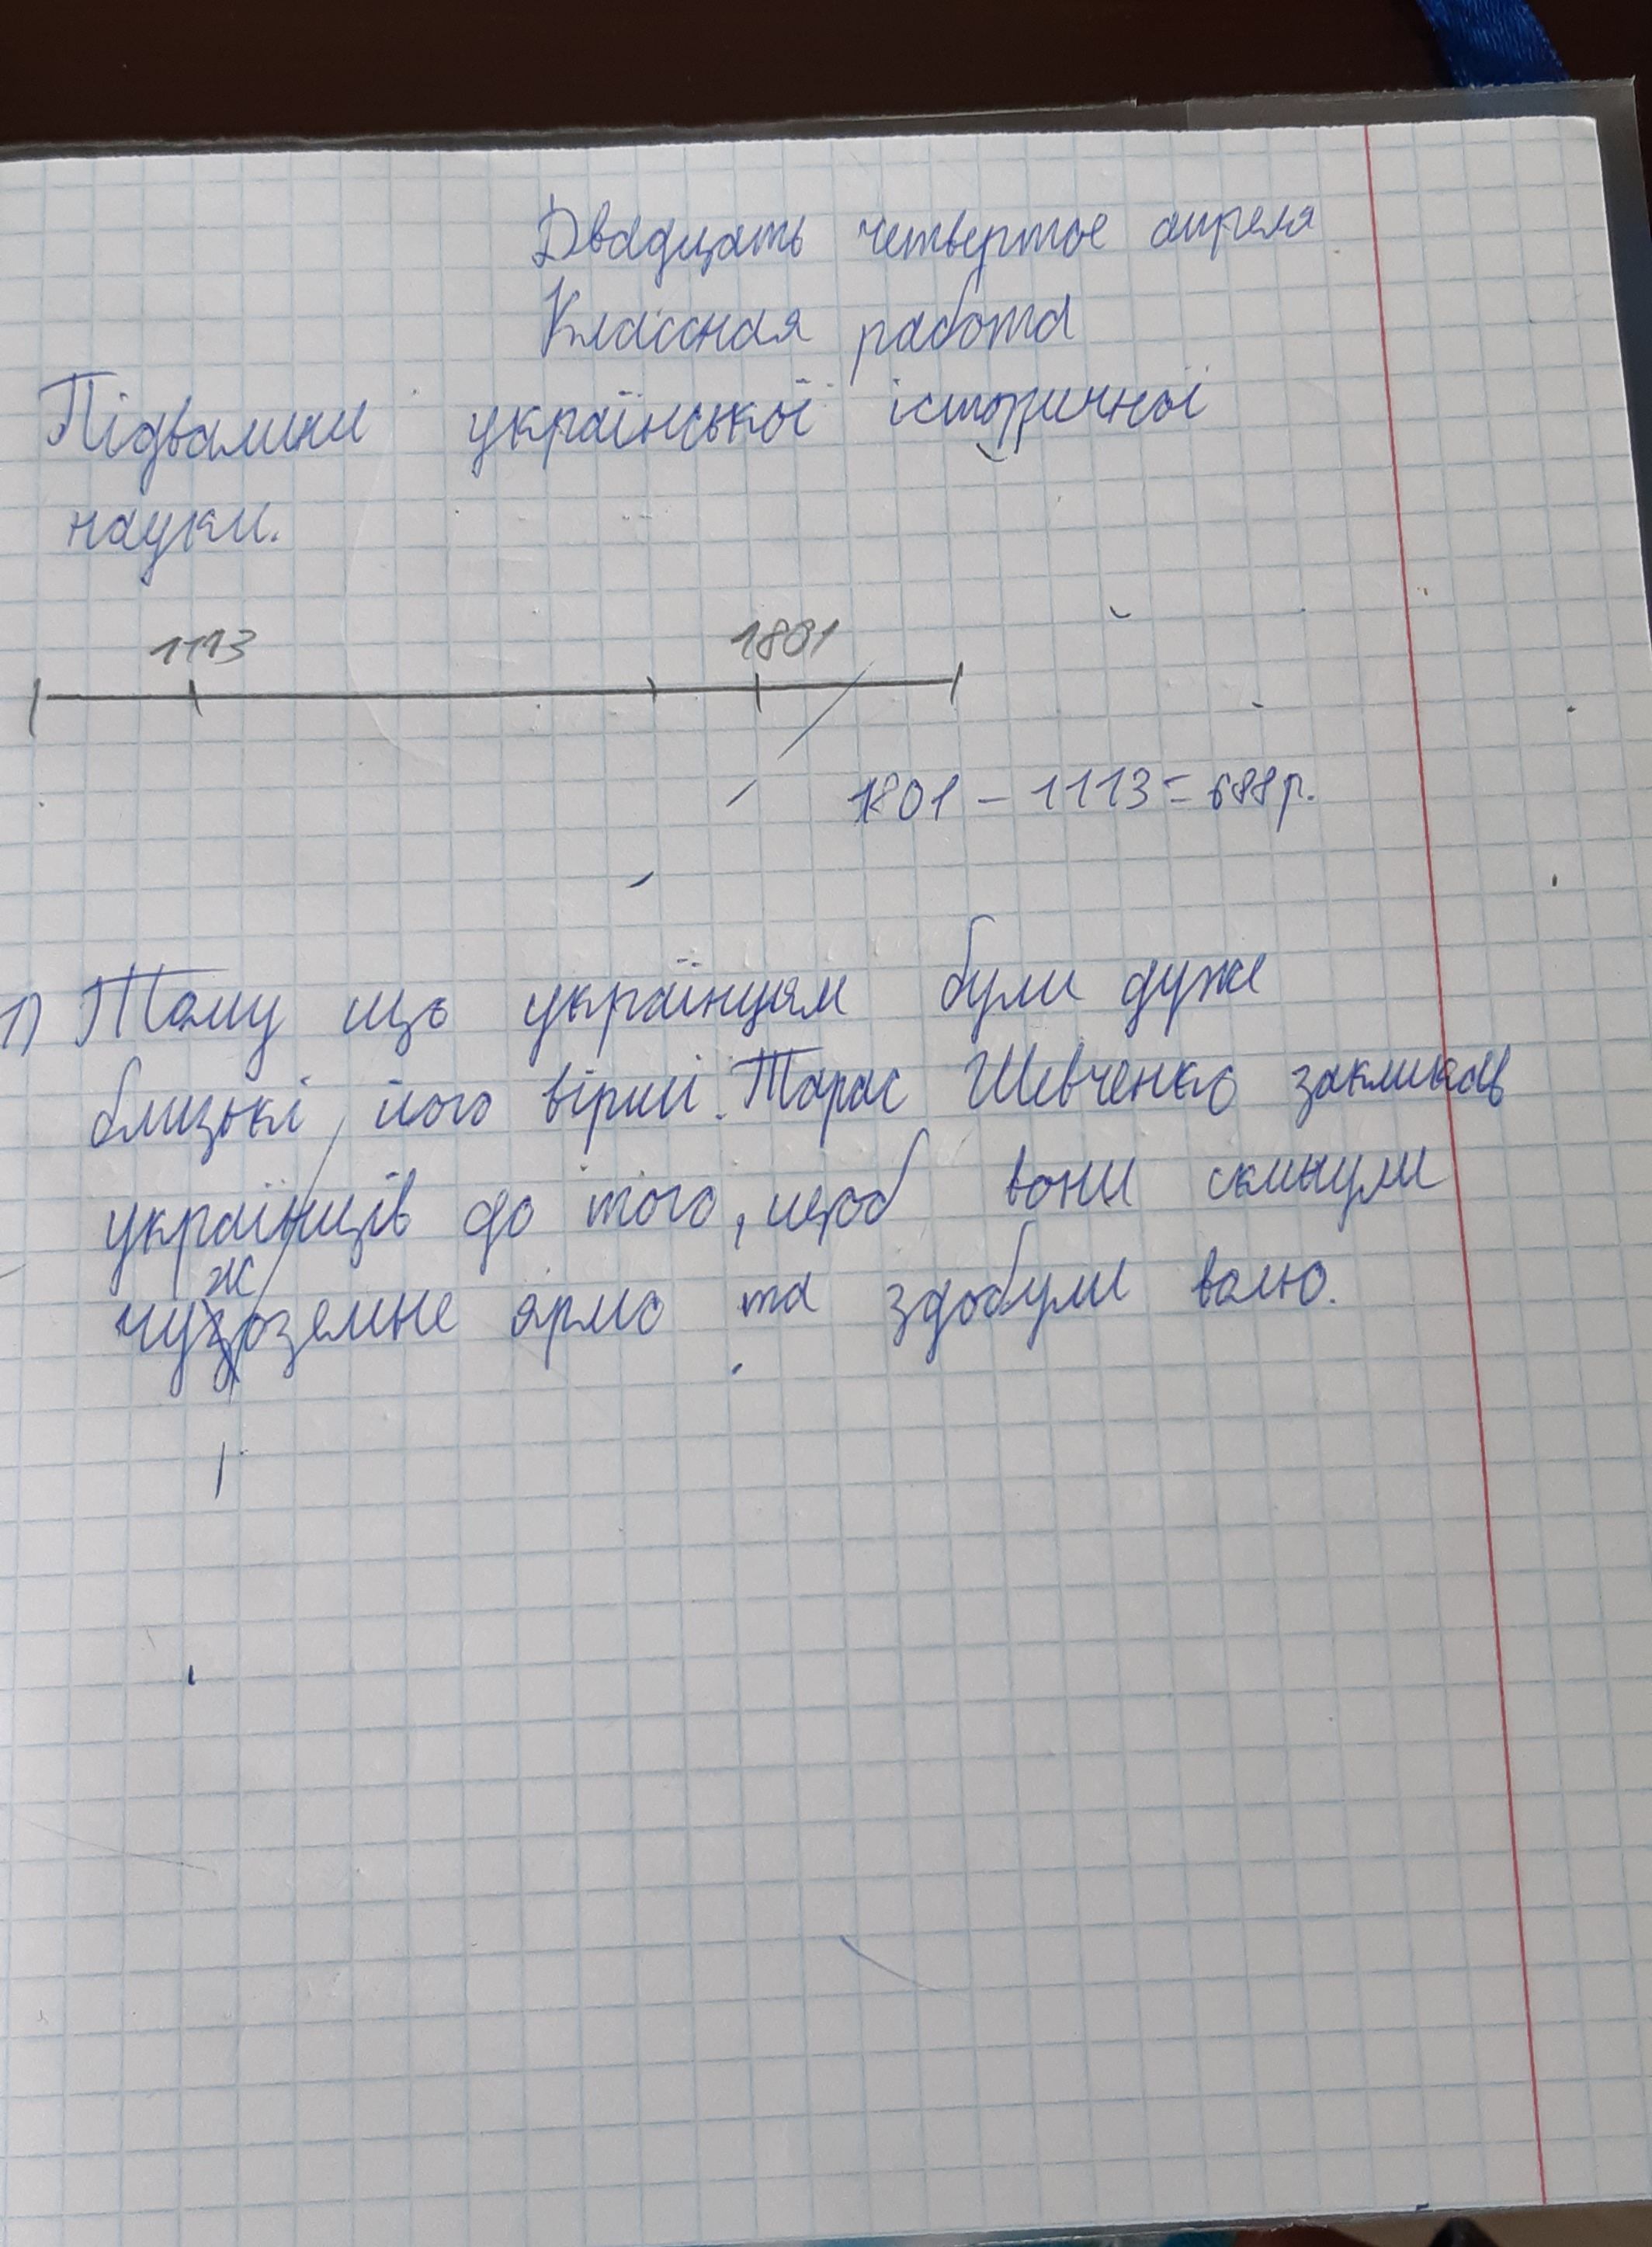 Двадцать четвертое апреля
Классная работа
Підвалини української історичної
науки.
1113 1801
1801 - 1113 = 688 р.
1) Тому що українцям були дуже
близькі його вірші. Тарас Шевченко закликав
українців до того, щоб вони скинули
чужоземне ярмо та здобули волю.